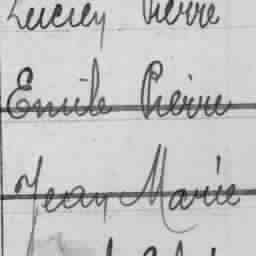 Lucien Pierre
Emile Pierre
Jean Marie